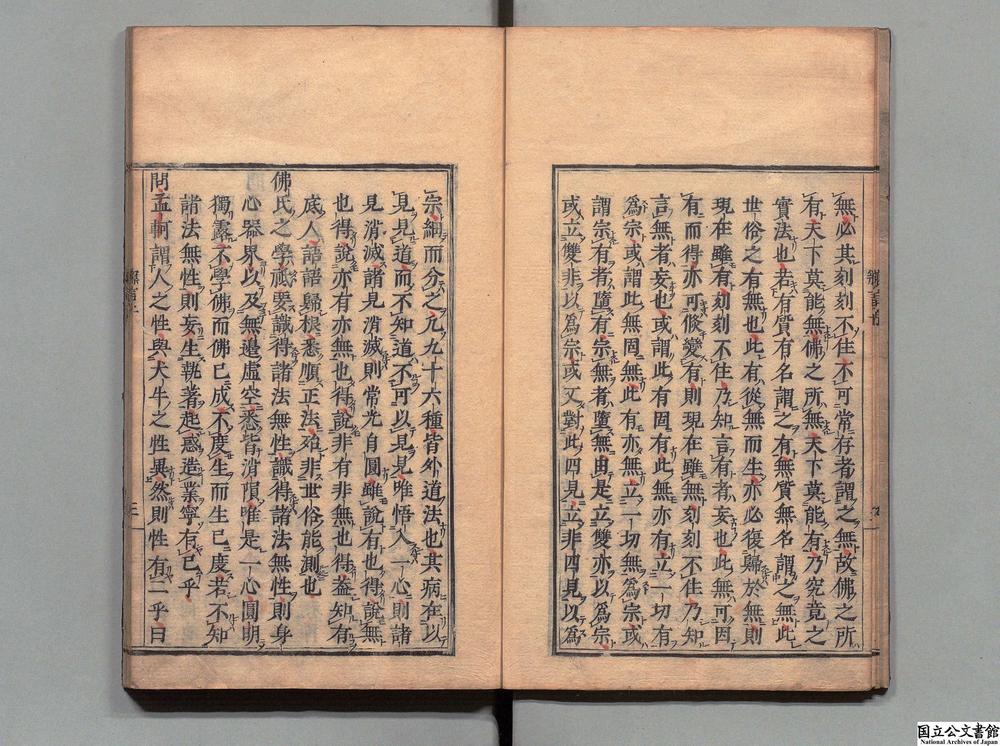 無必其刻刻不住不可常存者謂之無故佛之所
有天下莫能無佛之所無天下莫能有乃究竟之
實法也若有質有名謂之有無質無名謂之無此
世俗之有無也此有從無而生亦必復歸於無則
現在雖有刻刻不住乃知言有者妄也此無可因
有而得亦可倏變有則現在雖無刻刻不住乃知
言無者妄也或謂此有因有此無亦有立一切有
爲宗或謂此無因無此有亦無立一切無爲宗或
謂宗有者墮有宗無者墮無由是立雙亦以爲宗
或立雙非以爲宗或又對此四見立非四見以爲
宗細而分之九九十六種皆外道法也其病在以
見見道而不知道不可以見見唯悟入一心則諸
見消滅諸見消滅則常光自圓雖說有也得說無
也得說亦有亦無也得說非有非無也得益知有
底人語語歸根悉順正法殆非世俗能測也
佛氏之學祗要識得諸法無性識得諸法無性則身
心器界以及無邊虛空悉皆消隕唯是一心圓明
獨露不學佛而佛已成不度生而生已度若不知
諸法無性則妄生執著起惑造業寧有已乎
問孟軻謂人之性與犬牛之性異然則性有二乎曰
三
国立公文書館
National Archives of Japan